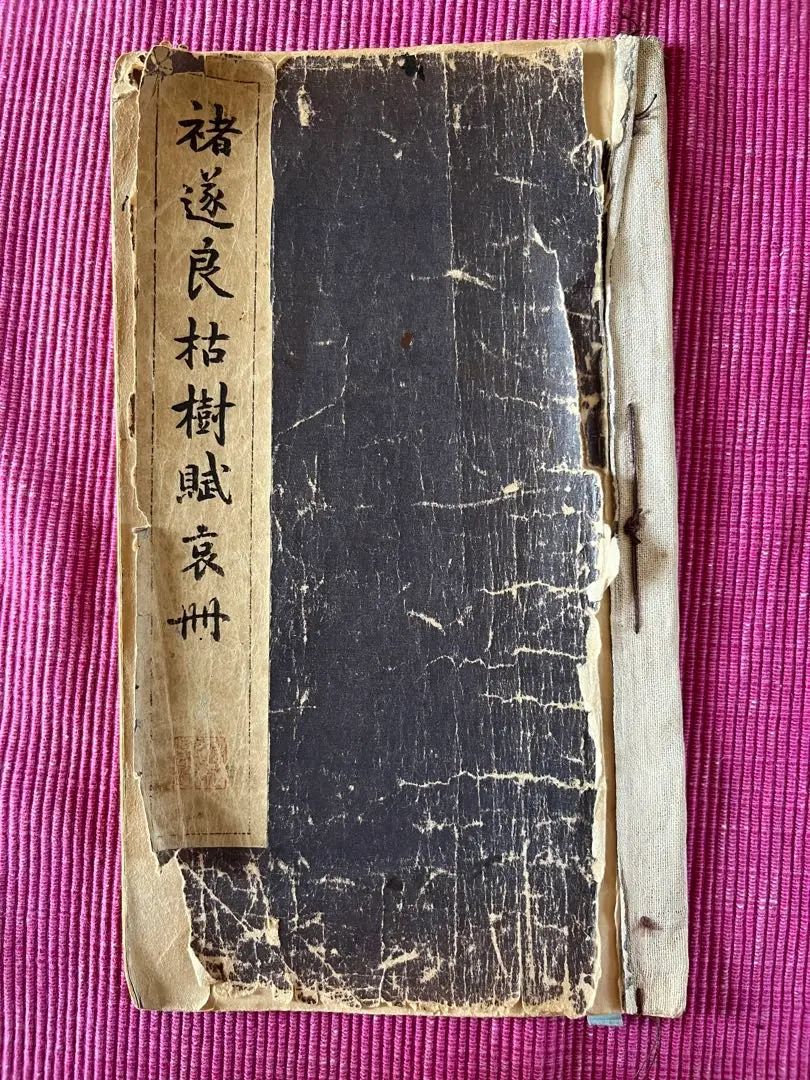 褚遂良枯樹賦哀冊